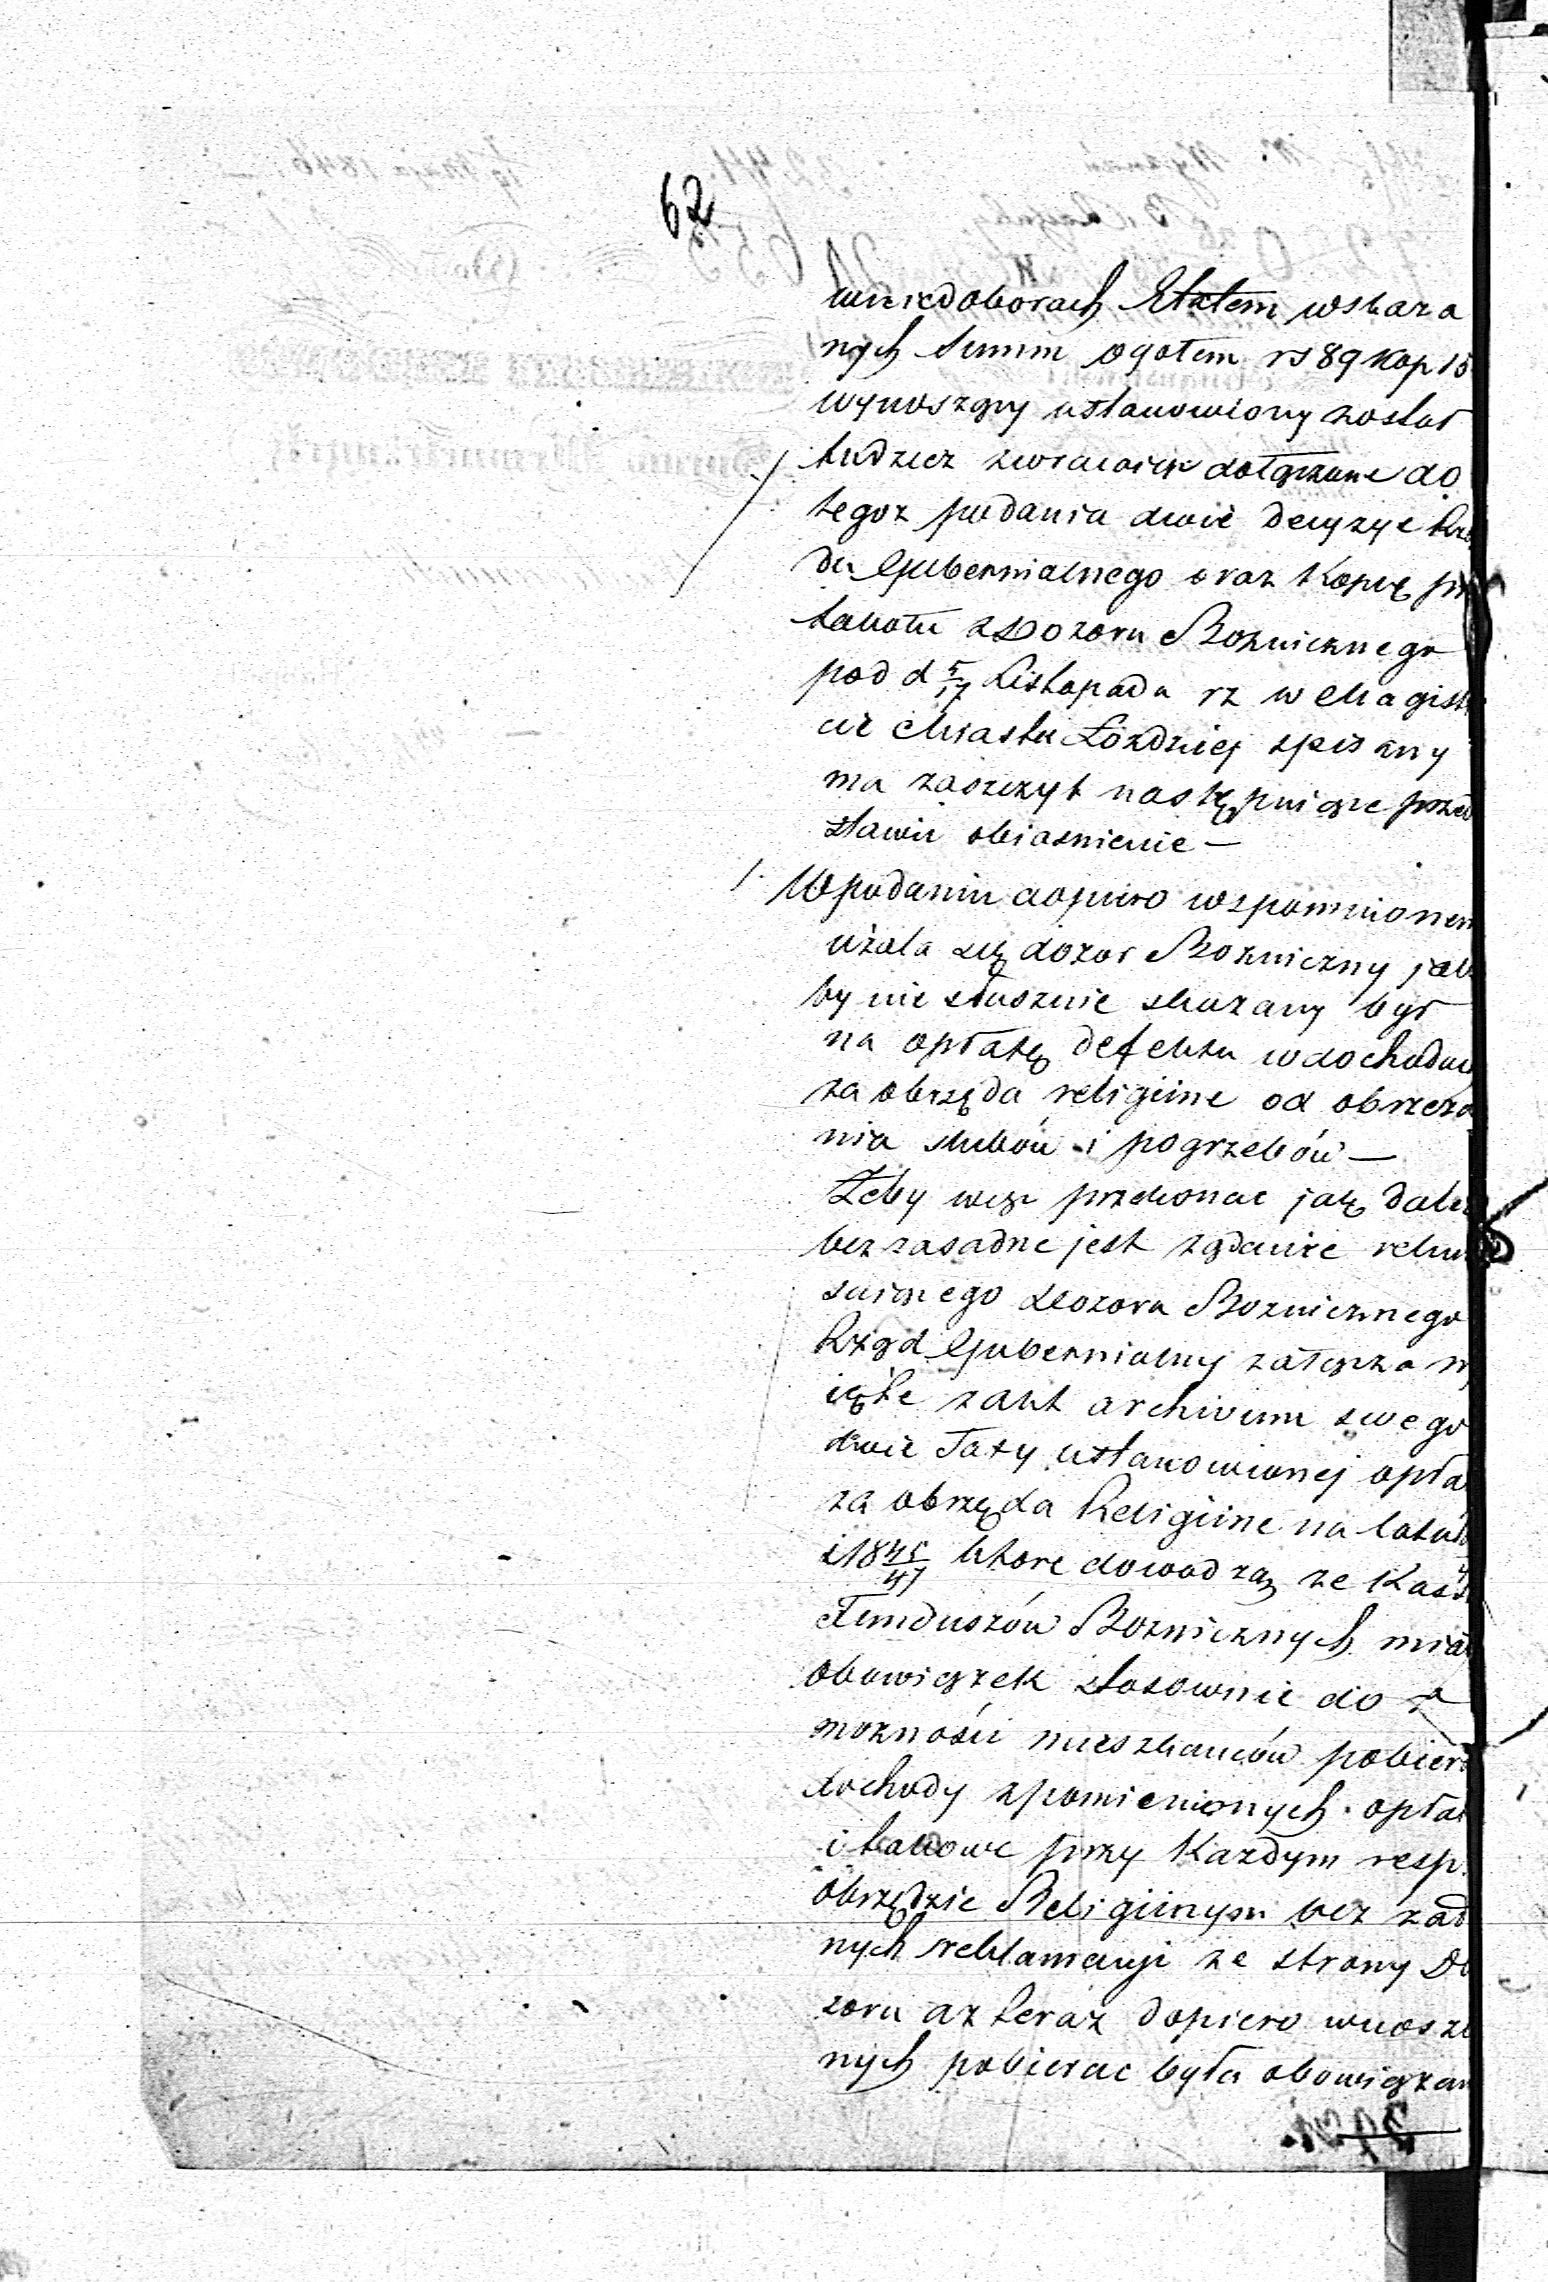 62
w niedoborach Etatem wskaza
nych Summ ogołem rs 89 kop 15
wynoszący ustanowiony został
tudzież zwracając dołączone do
tegoz podania dwie decyzye Rzą
du Gubernialnego oraz Kopię pro
tokołu z Dozoru Boznicznego
pod d 5/17 Listopada rz w Magistra
cie Miasta Łozdziej spisany
ma zaszczyt następuiące przed
stawić obiasnienie —
1. W podaniu dopiero wspomnionem
użala się dozor Bozniczny jako
by nie słusznie skazany był
na opłatę defektu w dochodach
za obrzęda religiine od obrzeza
nia slubów i pogrzebów —
Żeby więc przekonac jak dalece
bezzasadne jest żądanie rekur
suiącego dozoru Boznicznego
Rząd Gubernialny załącza wy
ięte z akt archivum swego
dwie Taxy ustanowionej opłaty
za obrzęda Religiine na lata
i 18 45/47 ktore dowodzą ze Kassyer
Funduszów Boznicznych miał
obowiązek stosownie do za
możności mieszkańców pobierać
dochody z pomienionych opłat
i takowe przy Każdym resp.
obrzędzie Religiinym bez żad
nych reklamacyi ze strony Do
zoru az teraz dopiero wnoszo
nych pobierac była obowiązan